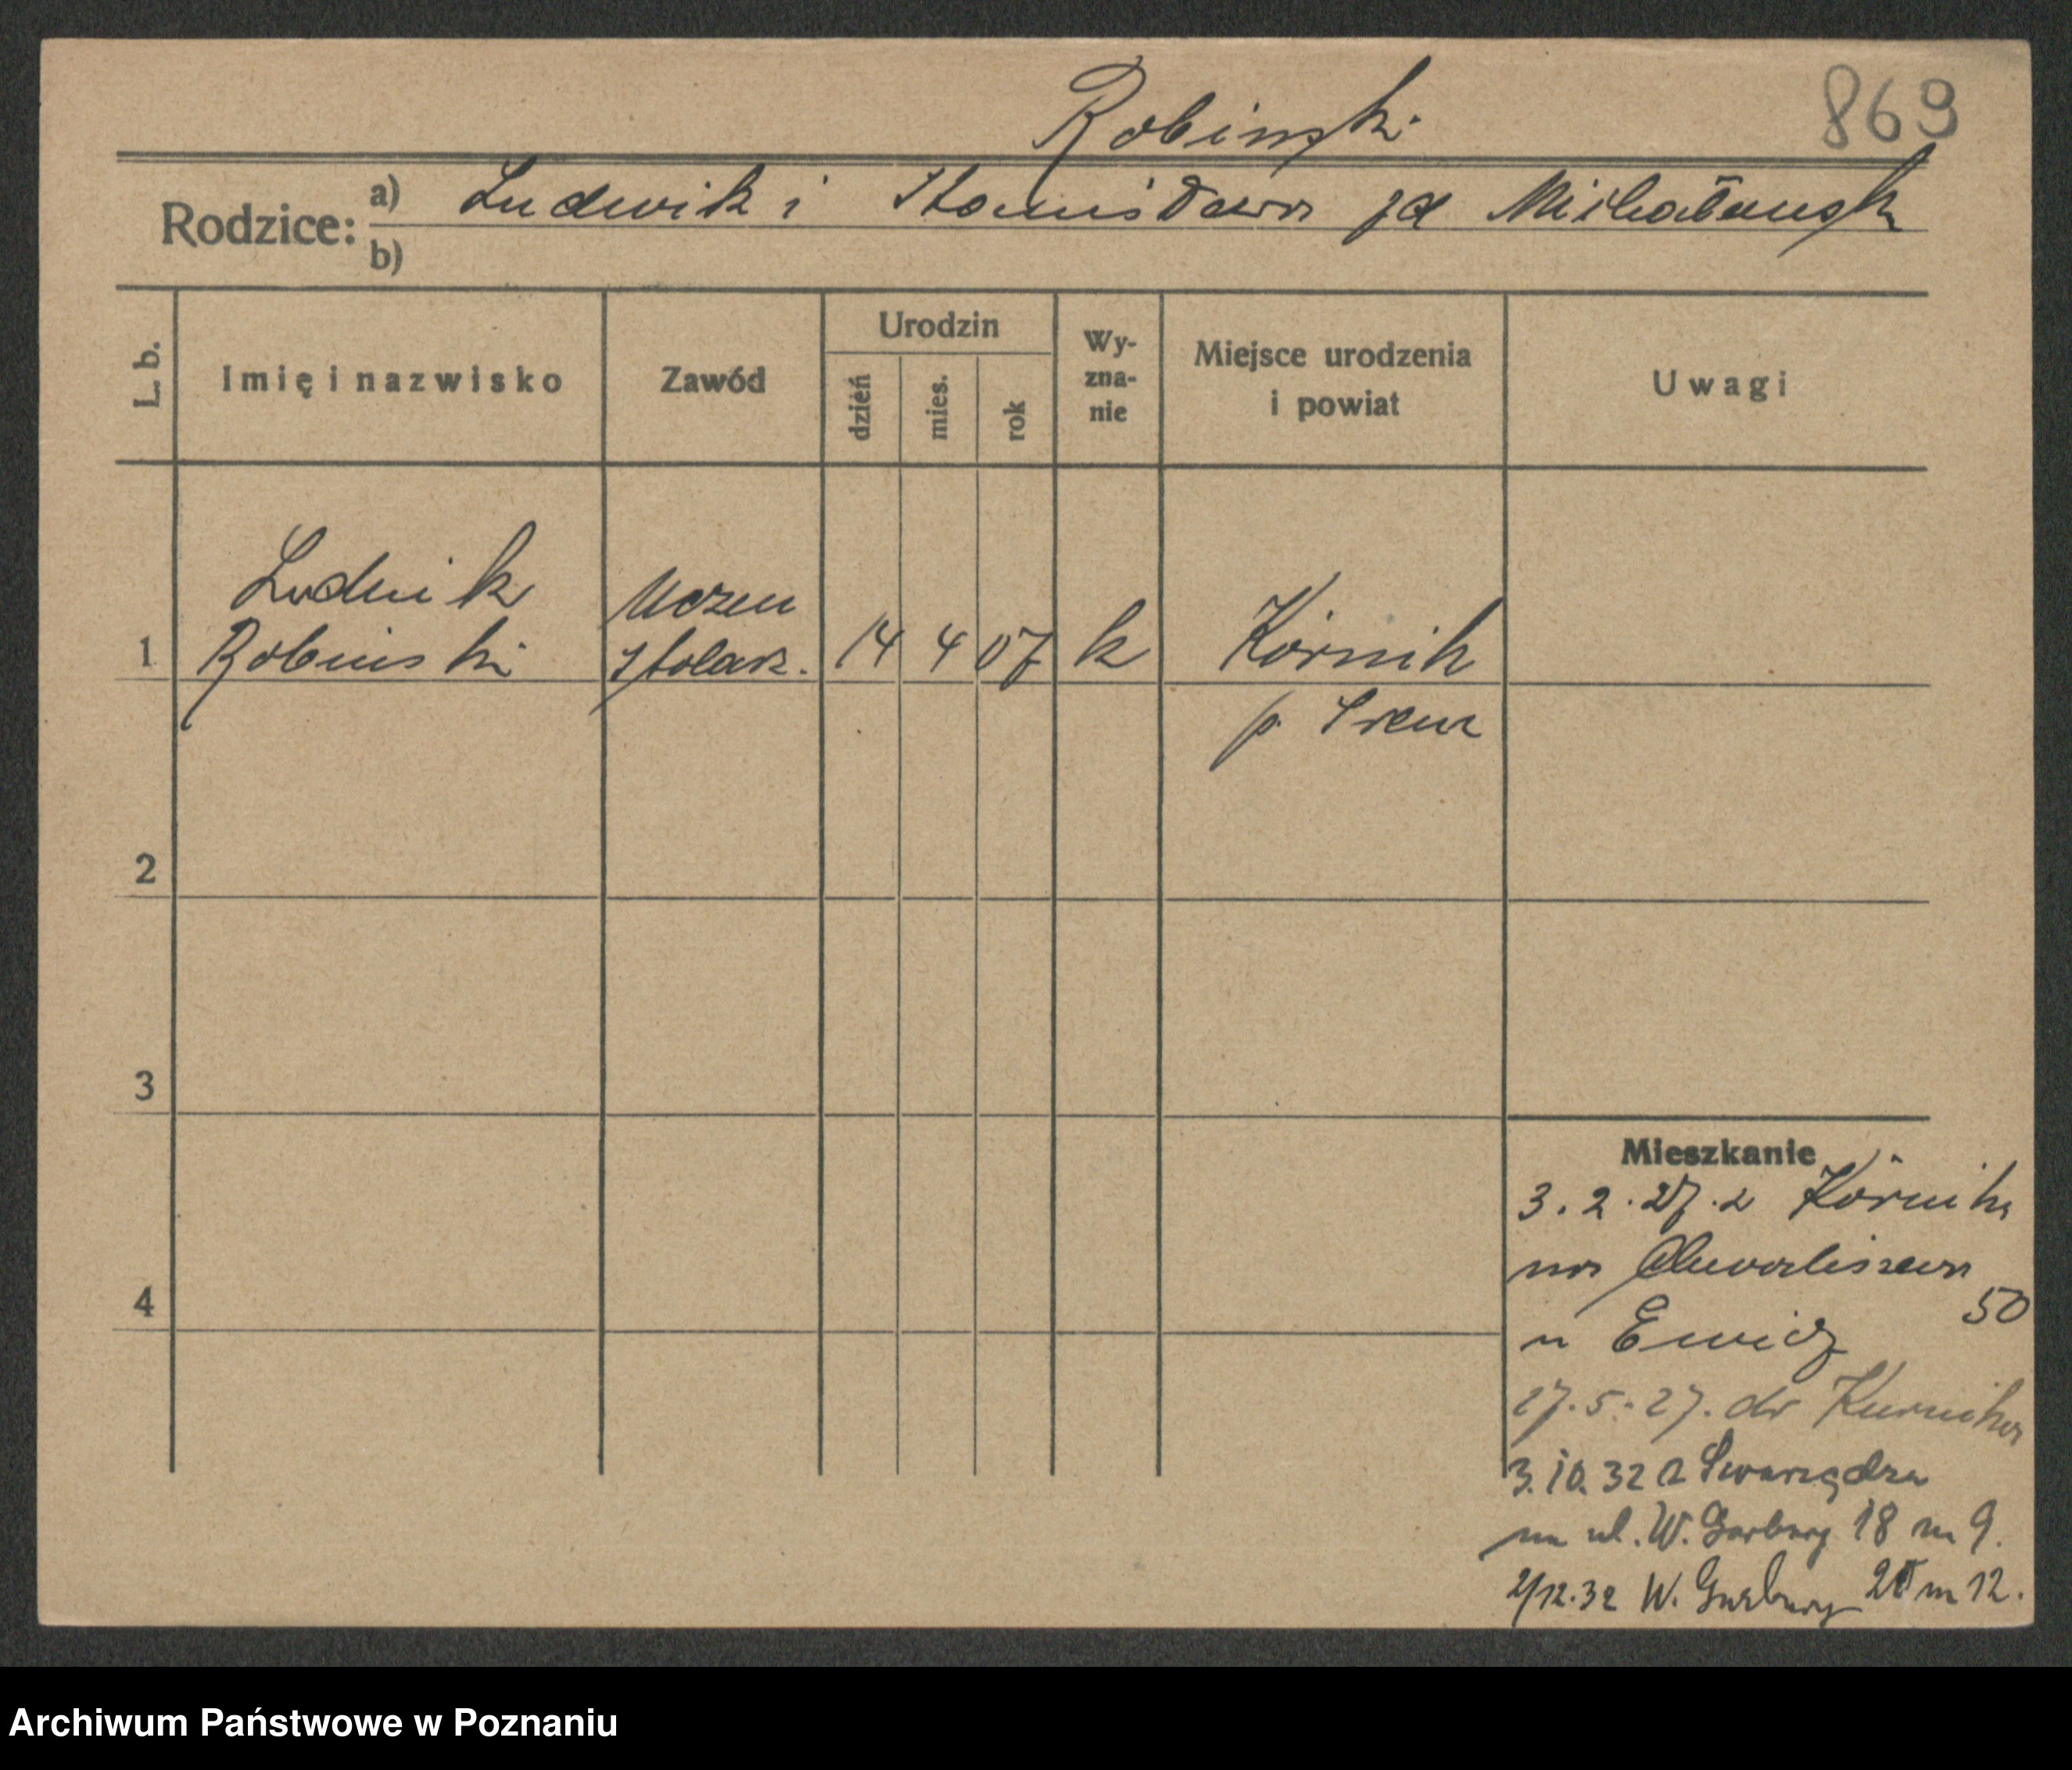 Robinski
869
Rodzice: a) Ludwik i Stanisława zd Michalansk
b)
L. b.
Imię i nazwisko
Zawód
Urodzin
dzień
mies.
rok
Wy-
zna-
nie
Miejsce urodzenia
i powiat
Uwagi
Ludwik
Uczen
1 Robinski stolar. 14 4 07 k Kórnik
p. Srem
2
3
4
Mieszkanie
3.2.27. z Kórnika
na Chwaliszewo
50
u Ewicz
17.5.27. do Kurnika
3.10.32 z Swarzędza
na ul. W. Garbary 18 m 9.
2/12.32 W. Garbary m 12.
Archiwum Państwowe w Poznaniu